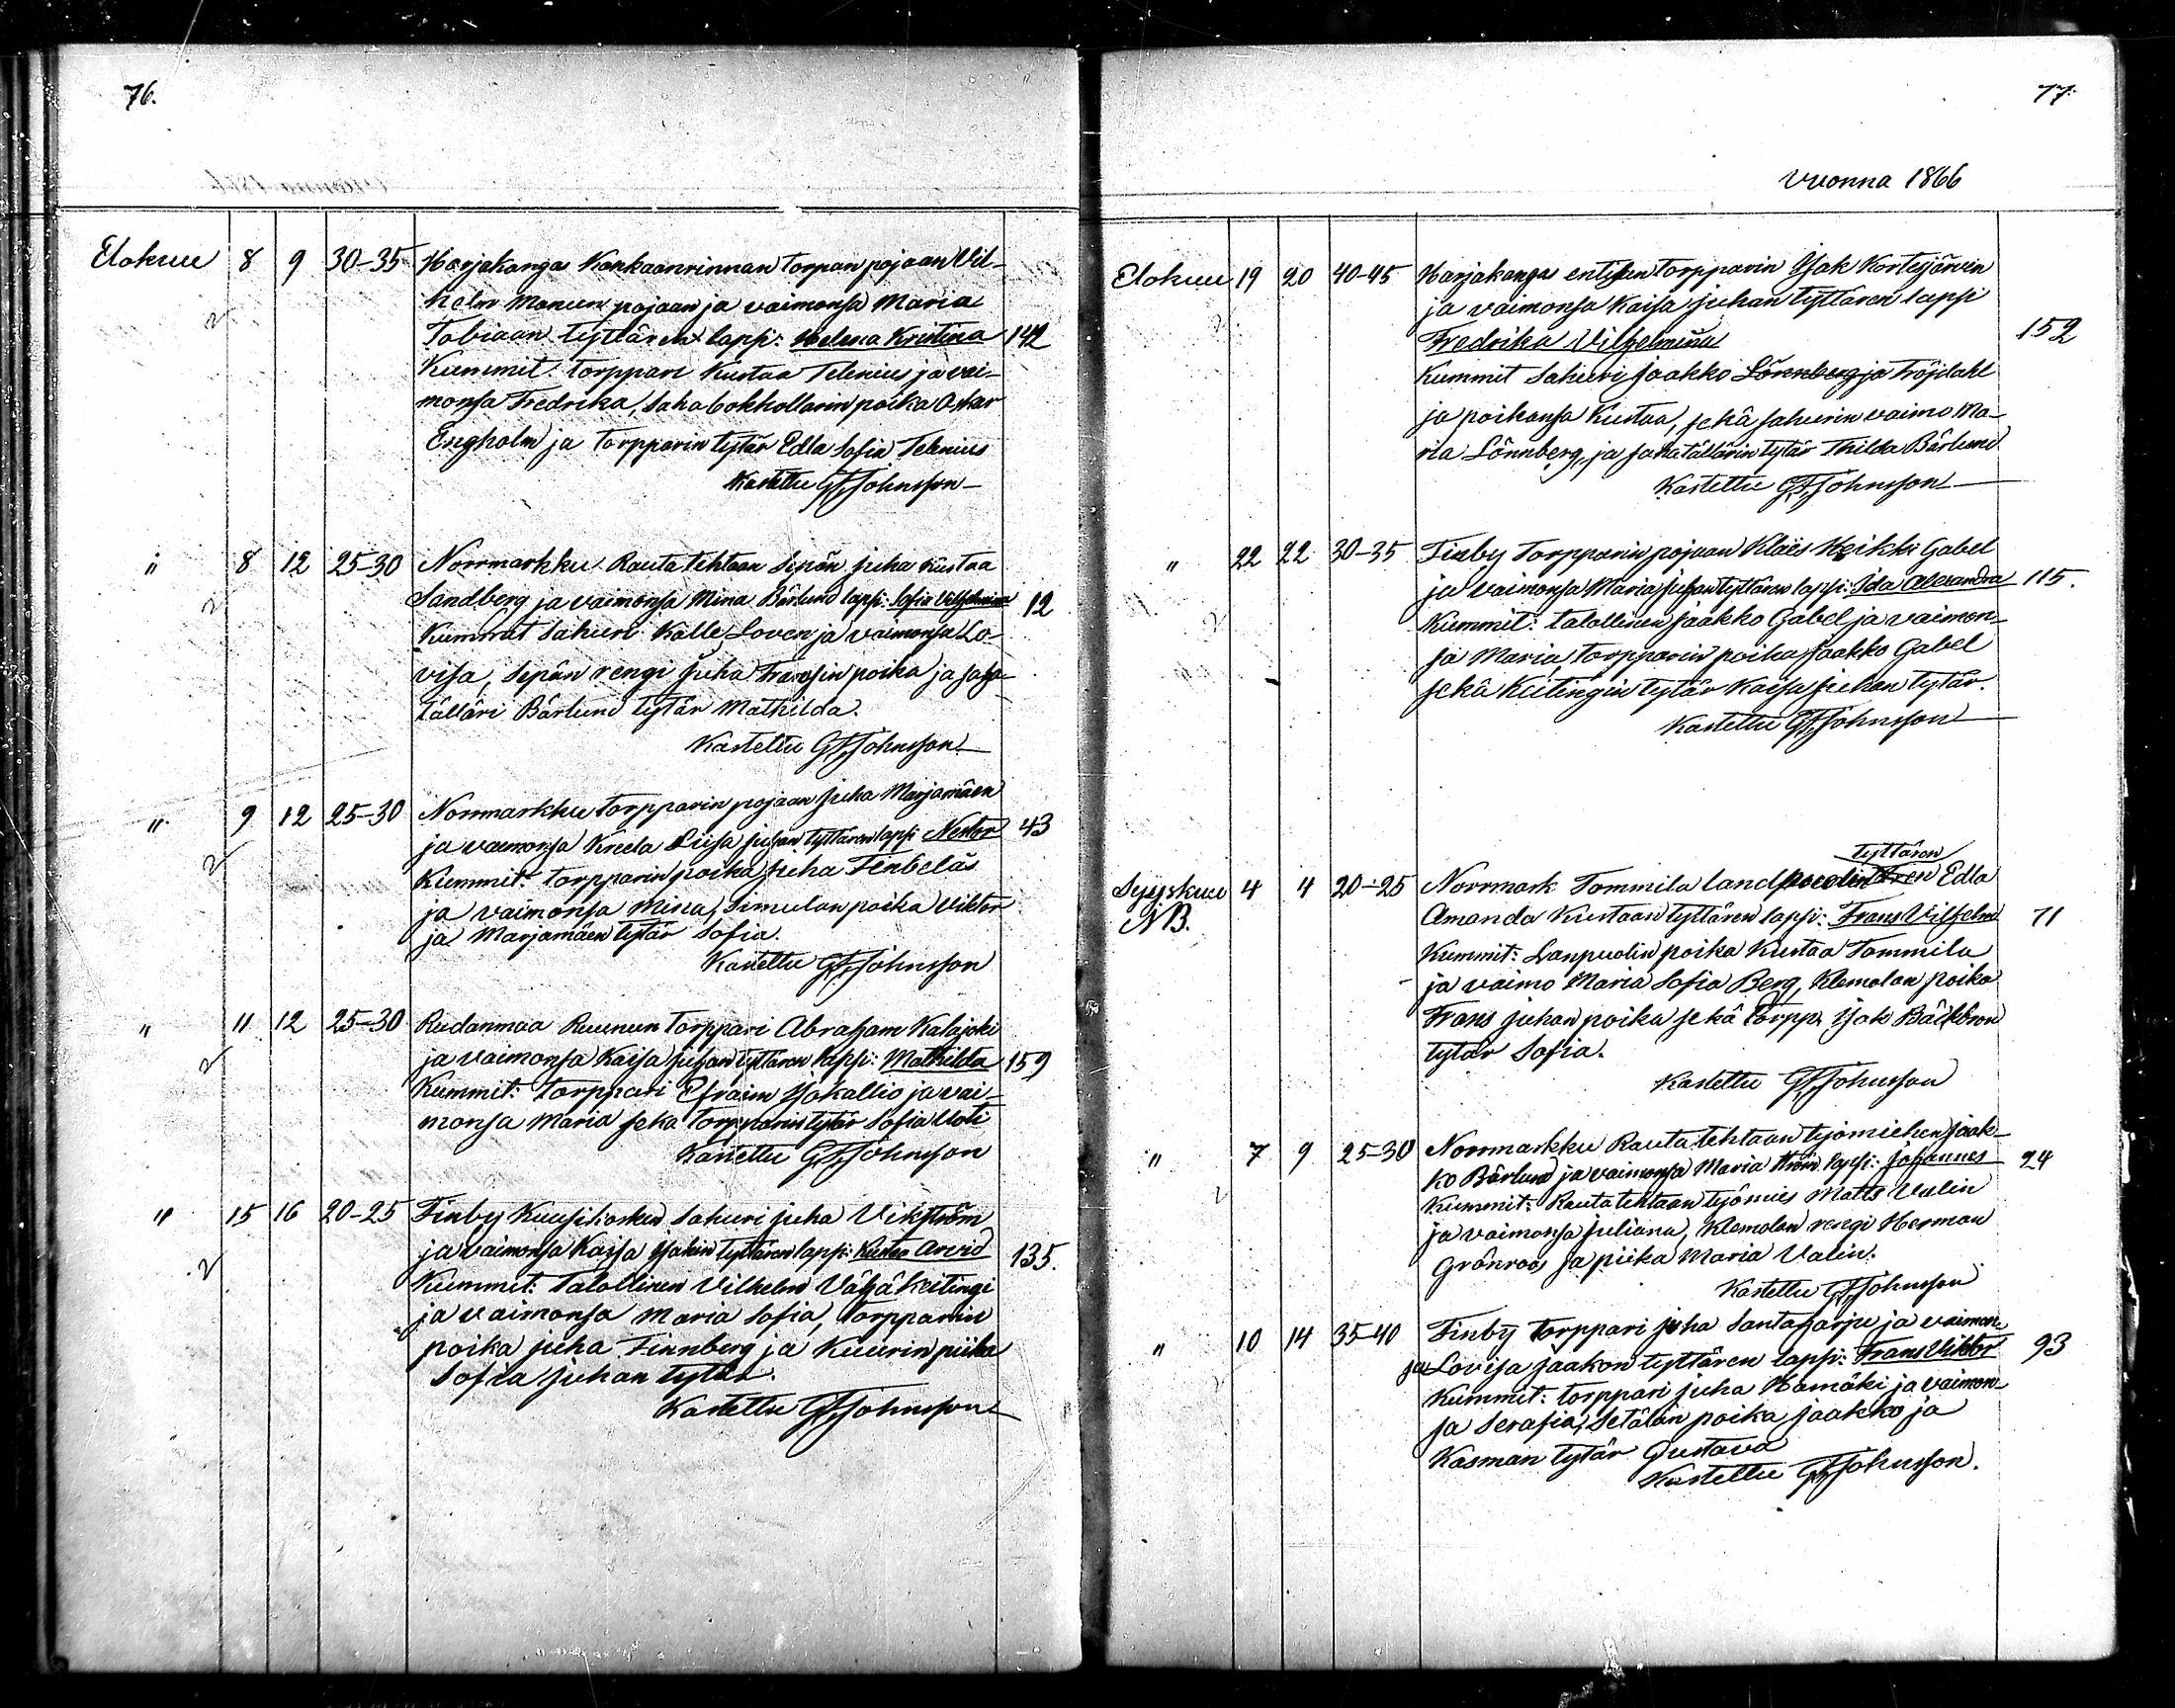 76.
Elokuu 8 9 30-35 Harjakanga Kankaanrinnan torpan pojaan Vil-
helm Manuun pojaan ja vaimonsa Maria
Tobiaan tyttären lapsi: Helena Kristina 142
Kummit: torppari Kustaa Telenius ja vai-
monsa Fredrika, Sahabokhollarin poika Oskar
Engholm ja torpparin tytär Edla Sofia Telenius
Kastettu GFJohnsson
" 8 12 25-30 Norrmarkku Rautatehtaan Sepän Juha Kustaa
Sandberg ja vaimonsa Mina Bärlund lapsi: Sofia Vilhelmina 12
Kummit Sahuri Kalle Loven ja vaimonsa Lo-
visa, Sepän rengi Juha Fransin poika ja saha-
tälläri Bärlund tytär Mathilda.
Kastettu GFJohnsson
" 9 12 25-30 Norrmarkku torpparin pojaan Juha Marjamäen
ja vaimonsa Kreeta Liisa Juhan tyttären lapsi Nestor 43
Kummit: torpparin poika Juha Finbeläs
ja vaimonsa Mina, Simulan poika Viktor
ja Marjamäen tytär Sofia.
Kastettu GFJohnsson
" 11 12 25-30 Rudanmaa Ruunun torppari Abraham Kalajoki
ja vaimonsa Kaisa Juhan tyttären lapsi: Mathilda 159
Kummit: torppari Efraim Isokallio ja vai-
monsa Maria seka torpparin tytär Sofia Uoti
Kastettu GFJohnsson
" 15 16 20-25 Finby Kuusikosken Sahuri Juha Vikström
ja vaimonsa Kaisa Isakin tyttären lapsi: Kustaa Arvid 135.
Kummit: Talollinen Vilhelm Vähäkeitingi
ja vaimonsa Maria Sofia, torpparin
poika Juha Finnberg ja Kuurin piika
Sofia Juhan tytär.
Kastettu GFJohnsson
77.
Vuonna 1866
Elokuu 19 20 40-45 Harjakangas entisen torpparin Isak Kortejärven
ja vaimonsa Kaisa Juhan tyttären lapsi
Fredrika Vilhelmina 152
Kummit Sahuri Jaakko Lönnberg ja Fröjdahl
ja poikansa Kustaa, sekä sahurin vaimo Ma-
ria Lönnberg, ja sahatällärin tytär Thilda Bärlund
Kastettu GFJohnsson
" 22 22 30-35 Finby Torpparin pojaan Klaës Heikki Gabel
ja vaimonsa Maria Juhan tyttären lapsi: Ida Alexandra 115.
Kummit: talollinen Jaakko Gabel ja vaimon-
sa Maria, torpparin poika Jaakko Gabel
sekä Keitingin tytär Kaisa Juhan tytär.
Kastettu GFJohnsson
tyttären
Syyskuu 4 4 20-25 Norrmark Tommila landpuolin Edla
NB. Amanda Kustaan tyttären lapsi: Frans Vilhelm 71
Kummit: Lanpuolin poika Kustaa Tommila
ja vaimo Maria Sofia Berg, Klemolan poika
Frans Juhan poika sekä torpp. Isak Bäckbron
tytär Sofia.
Kastettu GFJohnsson
" 7 9 25-30 Norrmarkku Rautatehtaan työmiehen Jaak-
ko Bärlund ja vaimonsa Maria Ström lapsi: Johannes 24
Kummit: Rautatehtaan työmies Matts Valin
ja vaimonsa Juliana, Klemolan rengi Herman
Grönroos ja piika Maria Valin.
Kastettu GFJohnsson
" 10 14 35-40 Finby torppari Juha Santaharju ja vaimon-
sa Lovisa Jaakon tyttären lapsi: Frans Viktor 93
Kummit: torppari Juha Hamäki ja vaimon-
sa Serafia, Setälän poika Jaakko ja
Kasman tytär Gustava
Kastettu GFJohnsson.